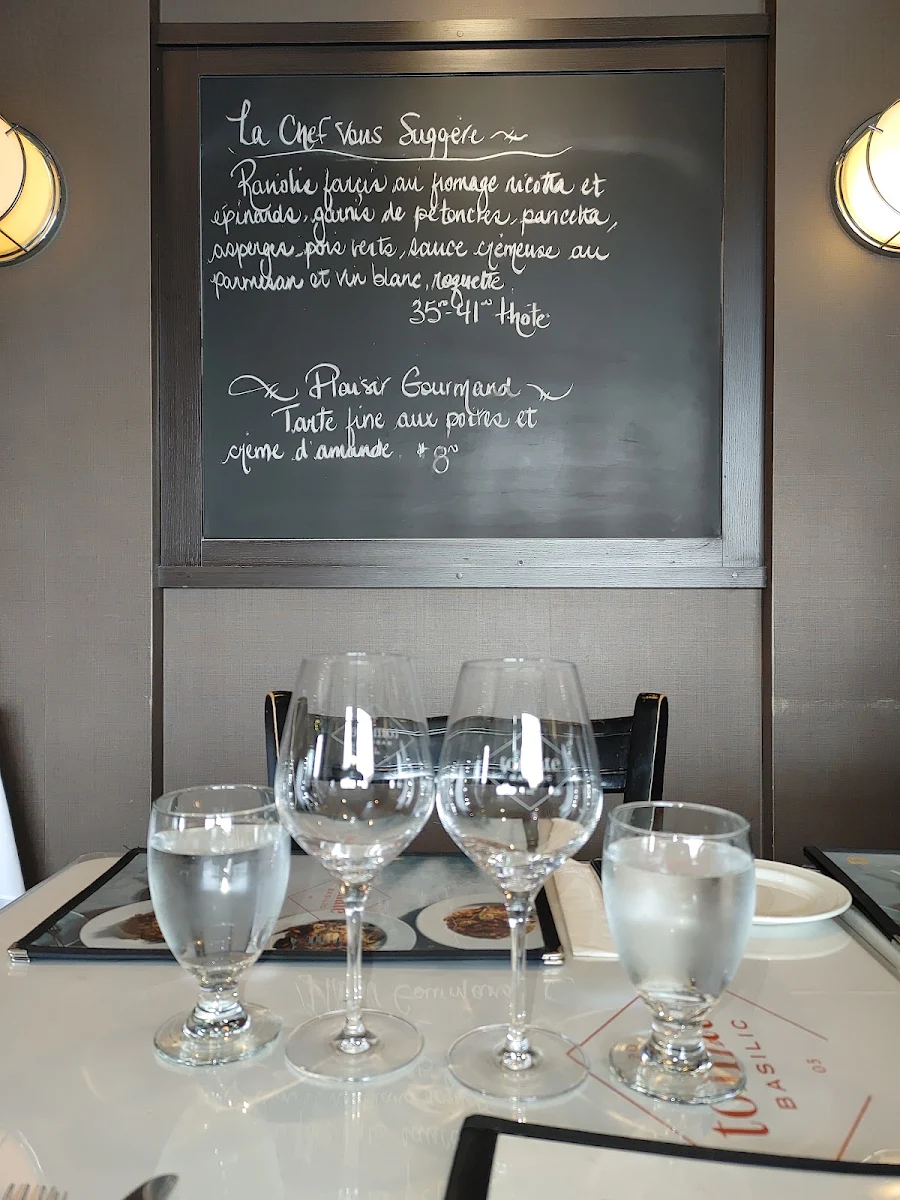 La Chef Vous Suggère
Raviolis farçis au fromage ricotta et
épinards, garnis de pétoncles, pancetta,
asperges, pois verts, sauce crémeuse au
parmesan et vin blanc, roquette
35⁰⁰-41⁰⁰ thôte
Plaisir Gourmand
Tarte fine aux poires et
crème d'amande $8⁰⁰
BASILIC